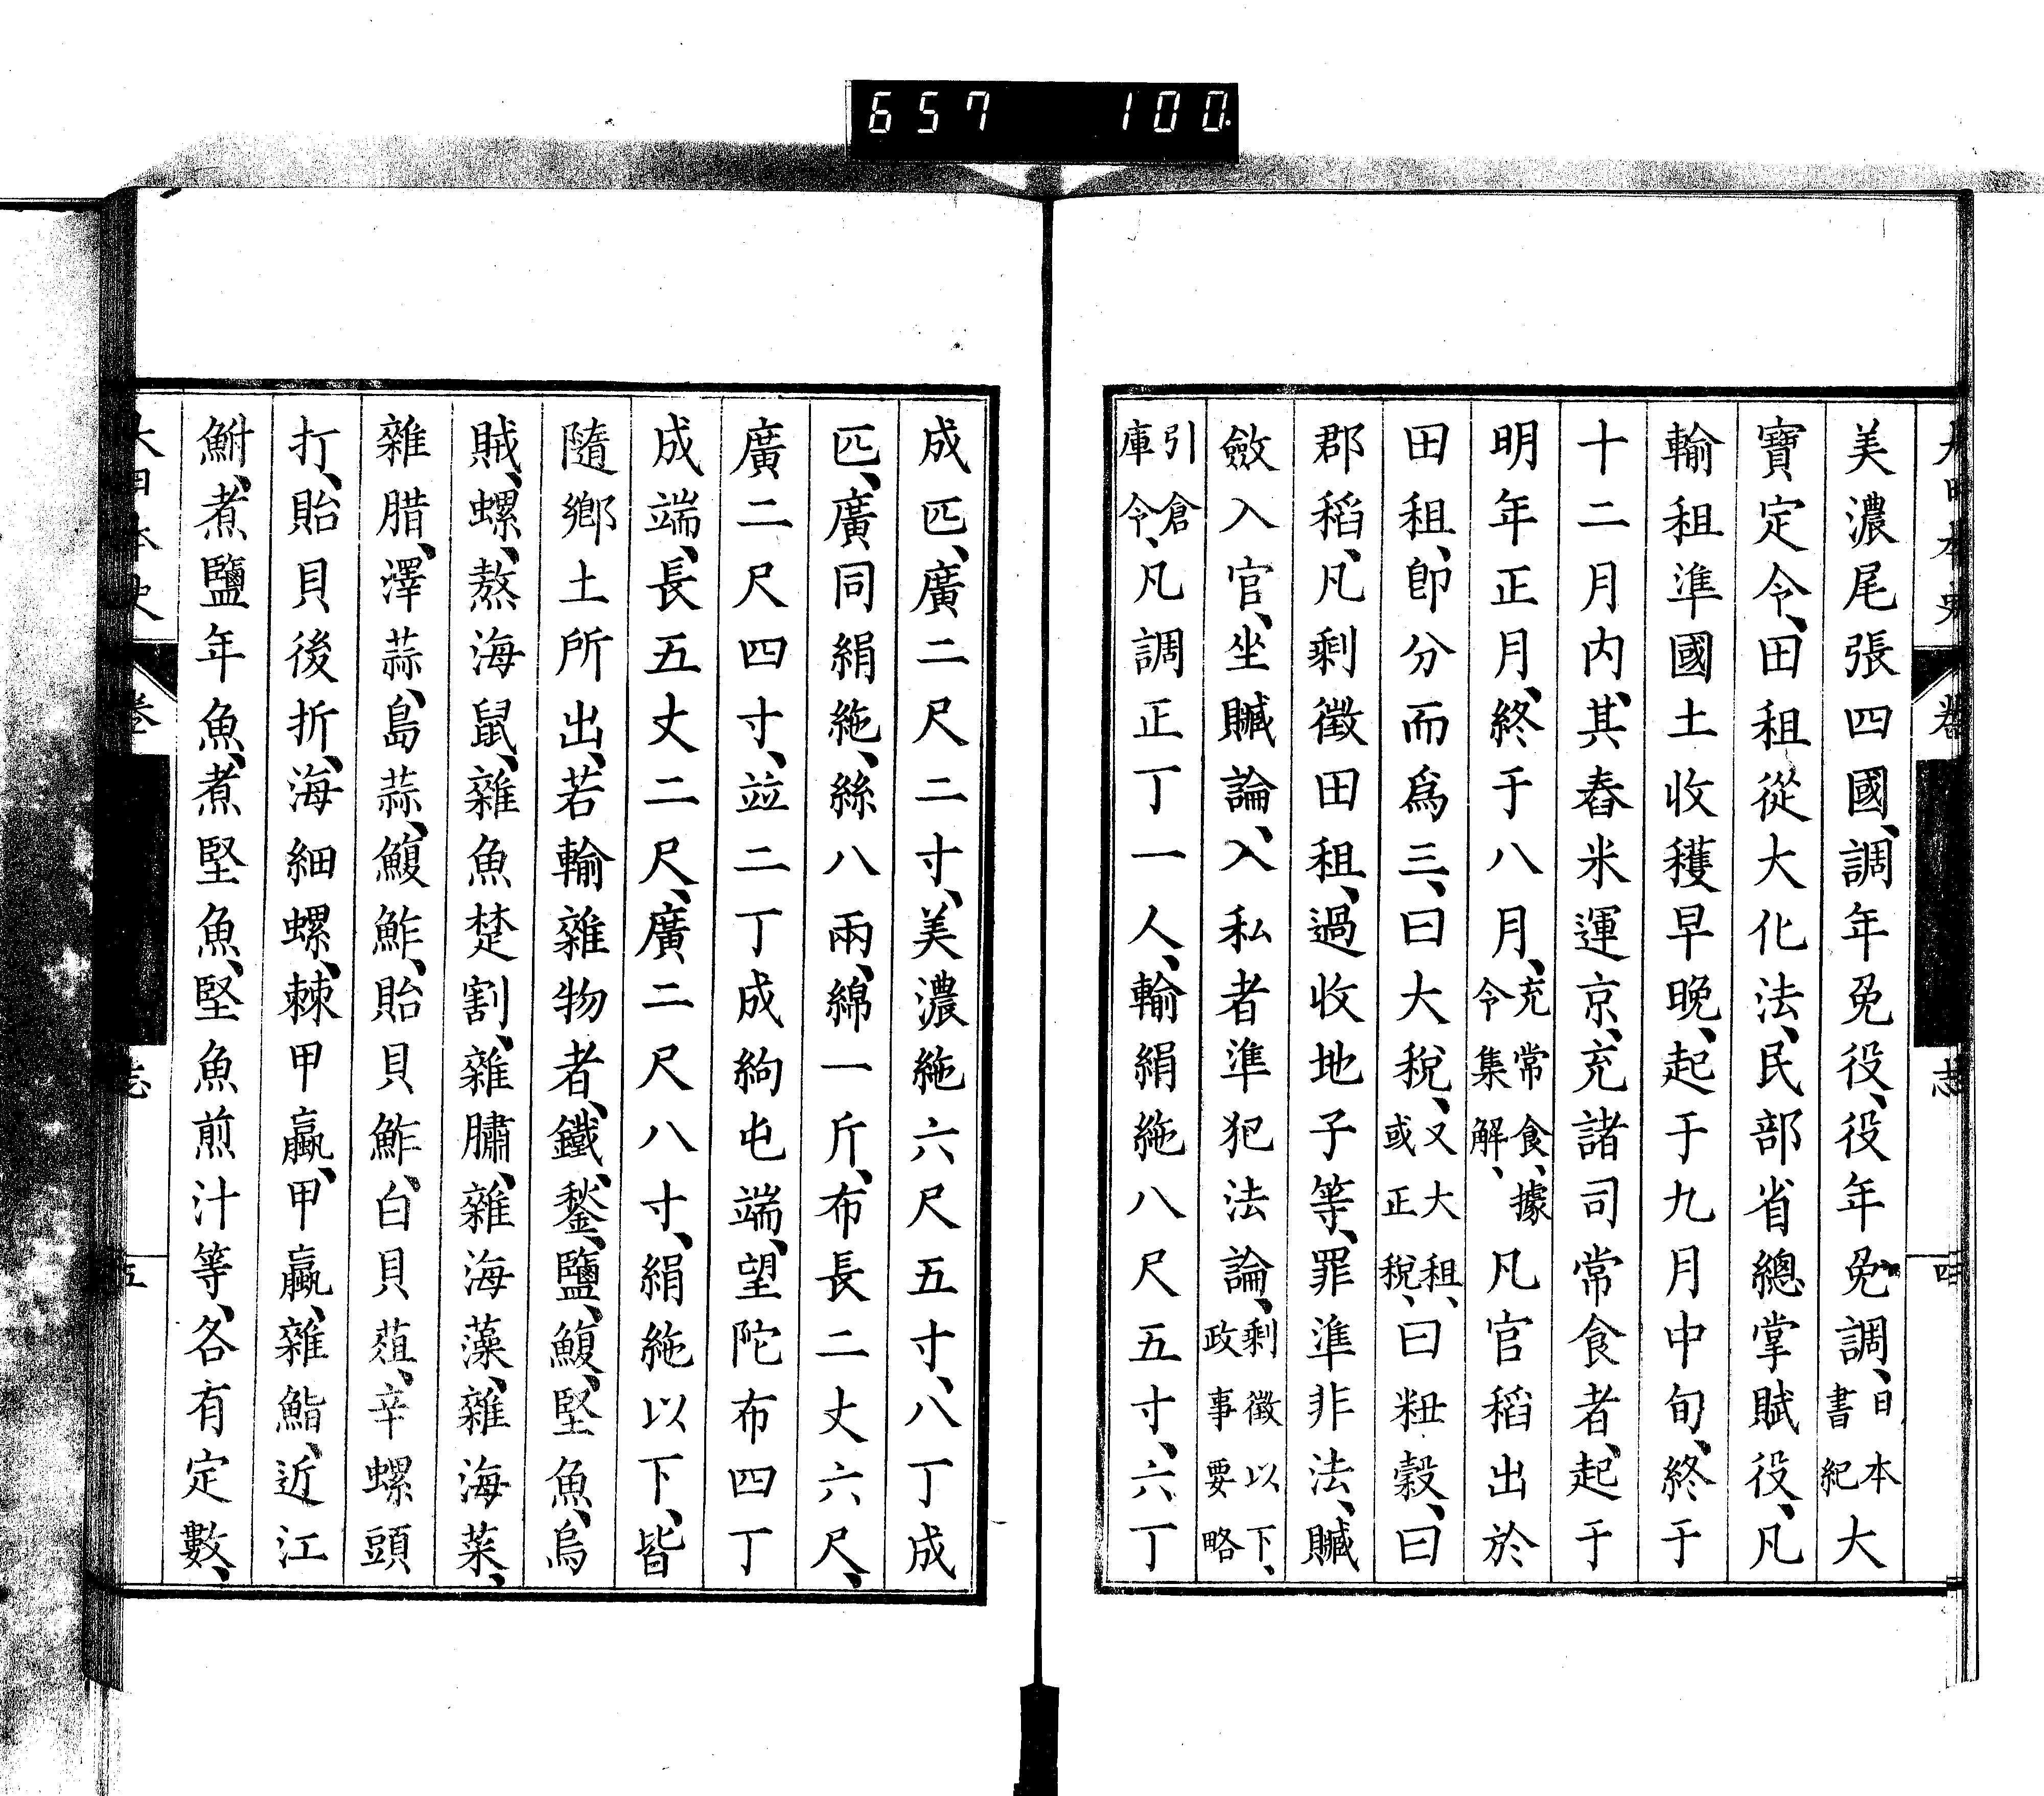 657 100
大日本史 卷 志 四
美濃尾張四國、調年免役、役年免調、日本書紀大
寶定令、田租從大化法、民部省總掌賦役、凡
輸租準國土收穫早晚、起于九月中旬、終于
十二月内、其舂米運京、充諸司常食者、起于
明年正月、終于八月、充常食、據令集解、凡官稻出於
田租、卽分而爲三、曰大稅、又大租、或正稅、曰籾穀、曰
郡稻、凡剩徵田租、過收地子等、罪準非法、贓
斂入官、坐贓論、入私者準犯法論、剩徵以下、政事要略
引倉庫令、凡調正丁一人、輸絹絁八尺五寸、六丁
成匹、廣二尺二寸、美濃絁六尺五寸、八丁成
匹、廣同絹絁、絲八兩、綿一斤、布長二丈六尺、
廣二尺四寸、竝二丁成絇屯端、望陀布四丁
成端、長五丈二尺、廣二尺八寸、絹絁以下、皆
隨鄉土所出、若輸雜物者、鐵、鍫、鹽、鰒、堅魚、烏
賊、螺、熬海鼠、雜魚楚割、雜臑、雜海藻、雜海菜、
雜腊、澤蒜、島蒜、鰒鮓、貽貝鮓、白貝葅、辛螺頭
打、貽貝後折、海細螺、棘甲蠃、甲蠃、雜鮨、近江
鮒、煮鹽年魚、煮堅魚、堅魚煎汁等、各有定數、
大日本史 卷 志 五